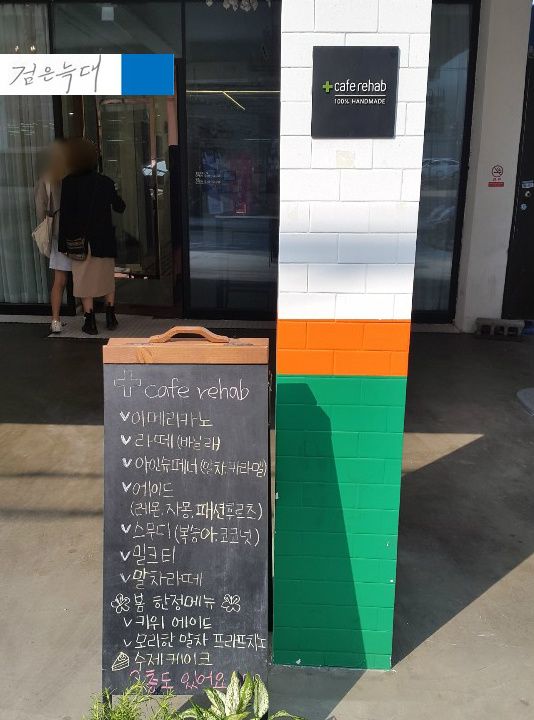 검은늑대
cafe rehab
100% HANDMADE
cafe rehab
아메리카노
라떼 (바닐라)
아인슈페너 (말차, 카라멜)
에이드
(레몬, 자몽, 패션후르츠)
스무디 (복숭아, 코코넛)
밀크티
말차라떼
봄 한정메뉴
키위 에이드
보리한 말차 프라프치노
수제케이크
2층도 있어요